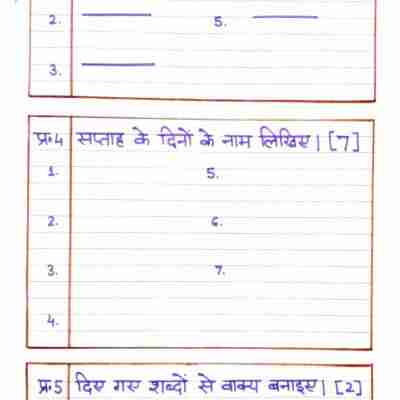 2. 5.
3.
प्र॰4 सप्ताह के दिनों के नाम लिखिए। [7]
1. 5.
2. 6.
3. 7.
4.
प्र॰5 दिए गए शब्दों से वाक्य बनाइए। [2]